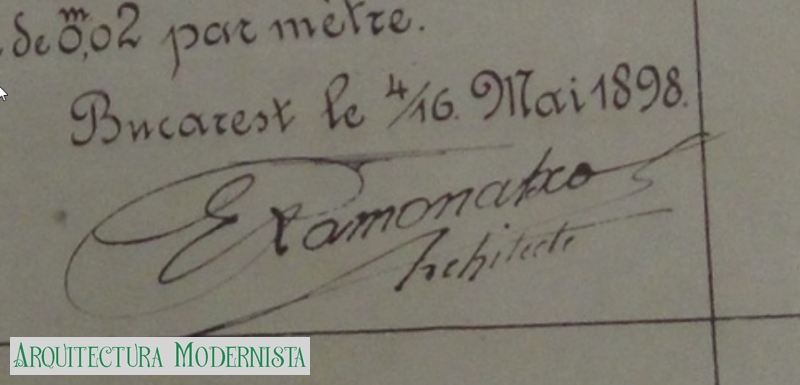 de 0,02 par mètre.
Bucarest le 4/16. Mai 1898.
E Ramonatxo
Architecte
ARQUITECTURA MODERNISTA